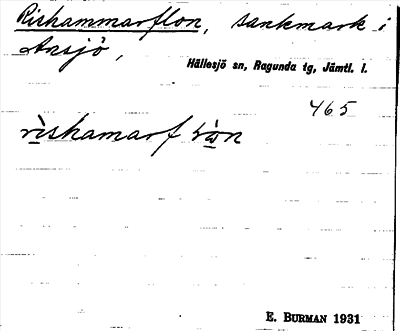 Rishammarflon, sankmark i
Ansjö,
Hällesjö sn, Ragunda tg, Jämtl. l.
465
E. BURMAN 1931